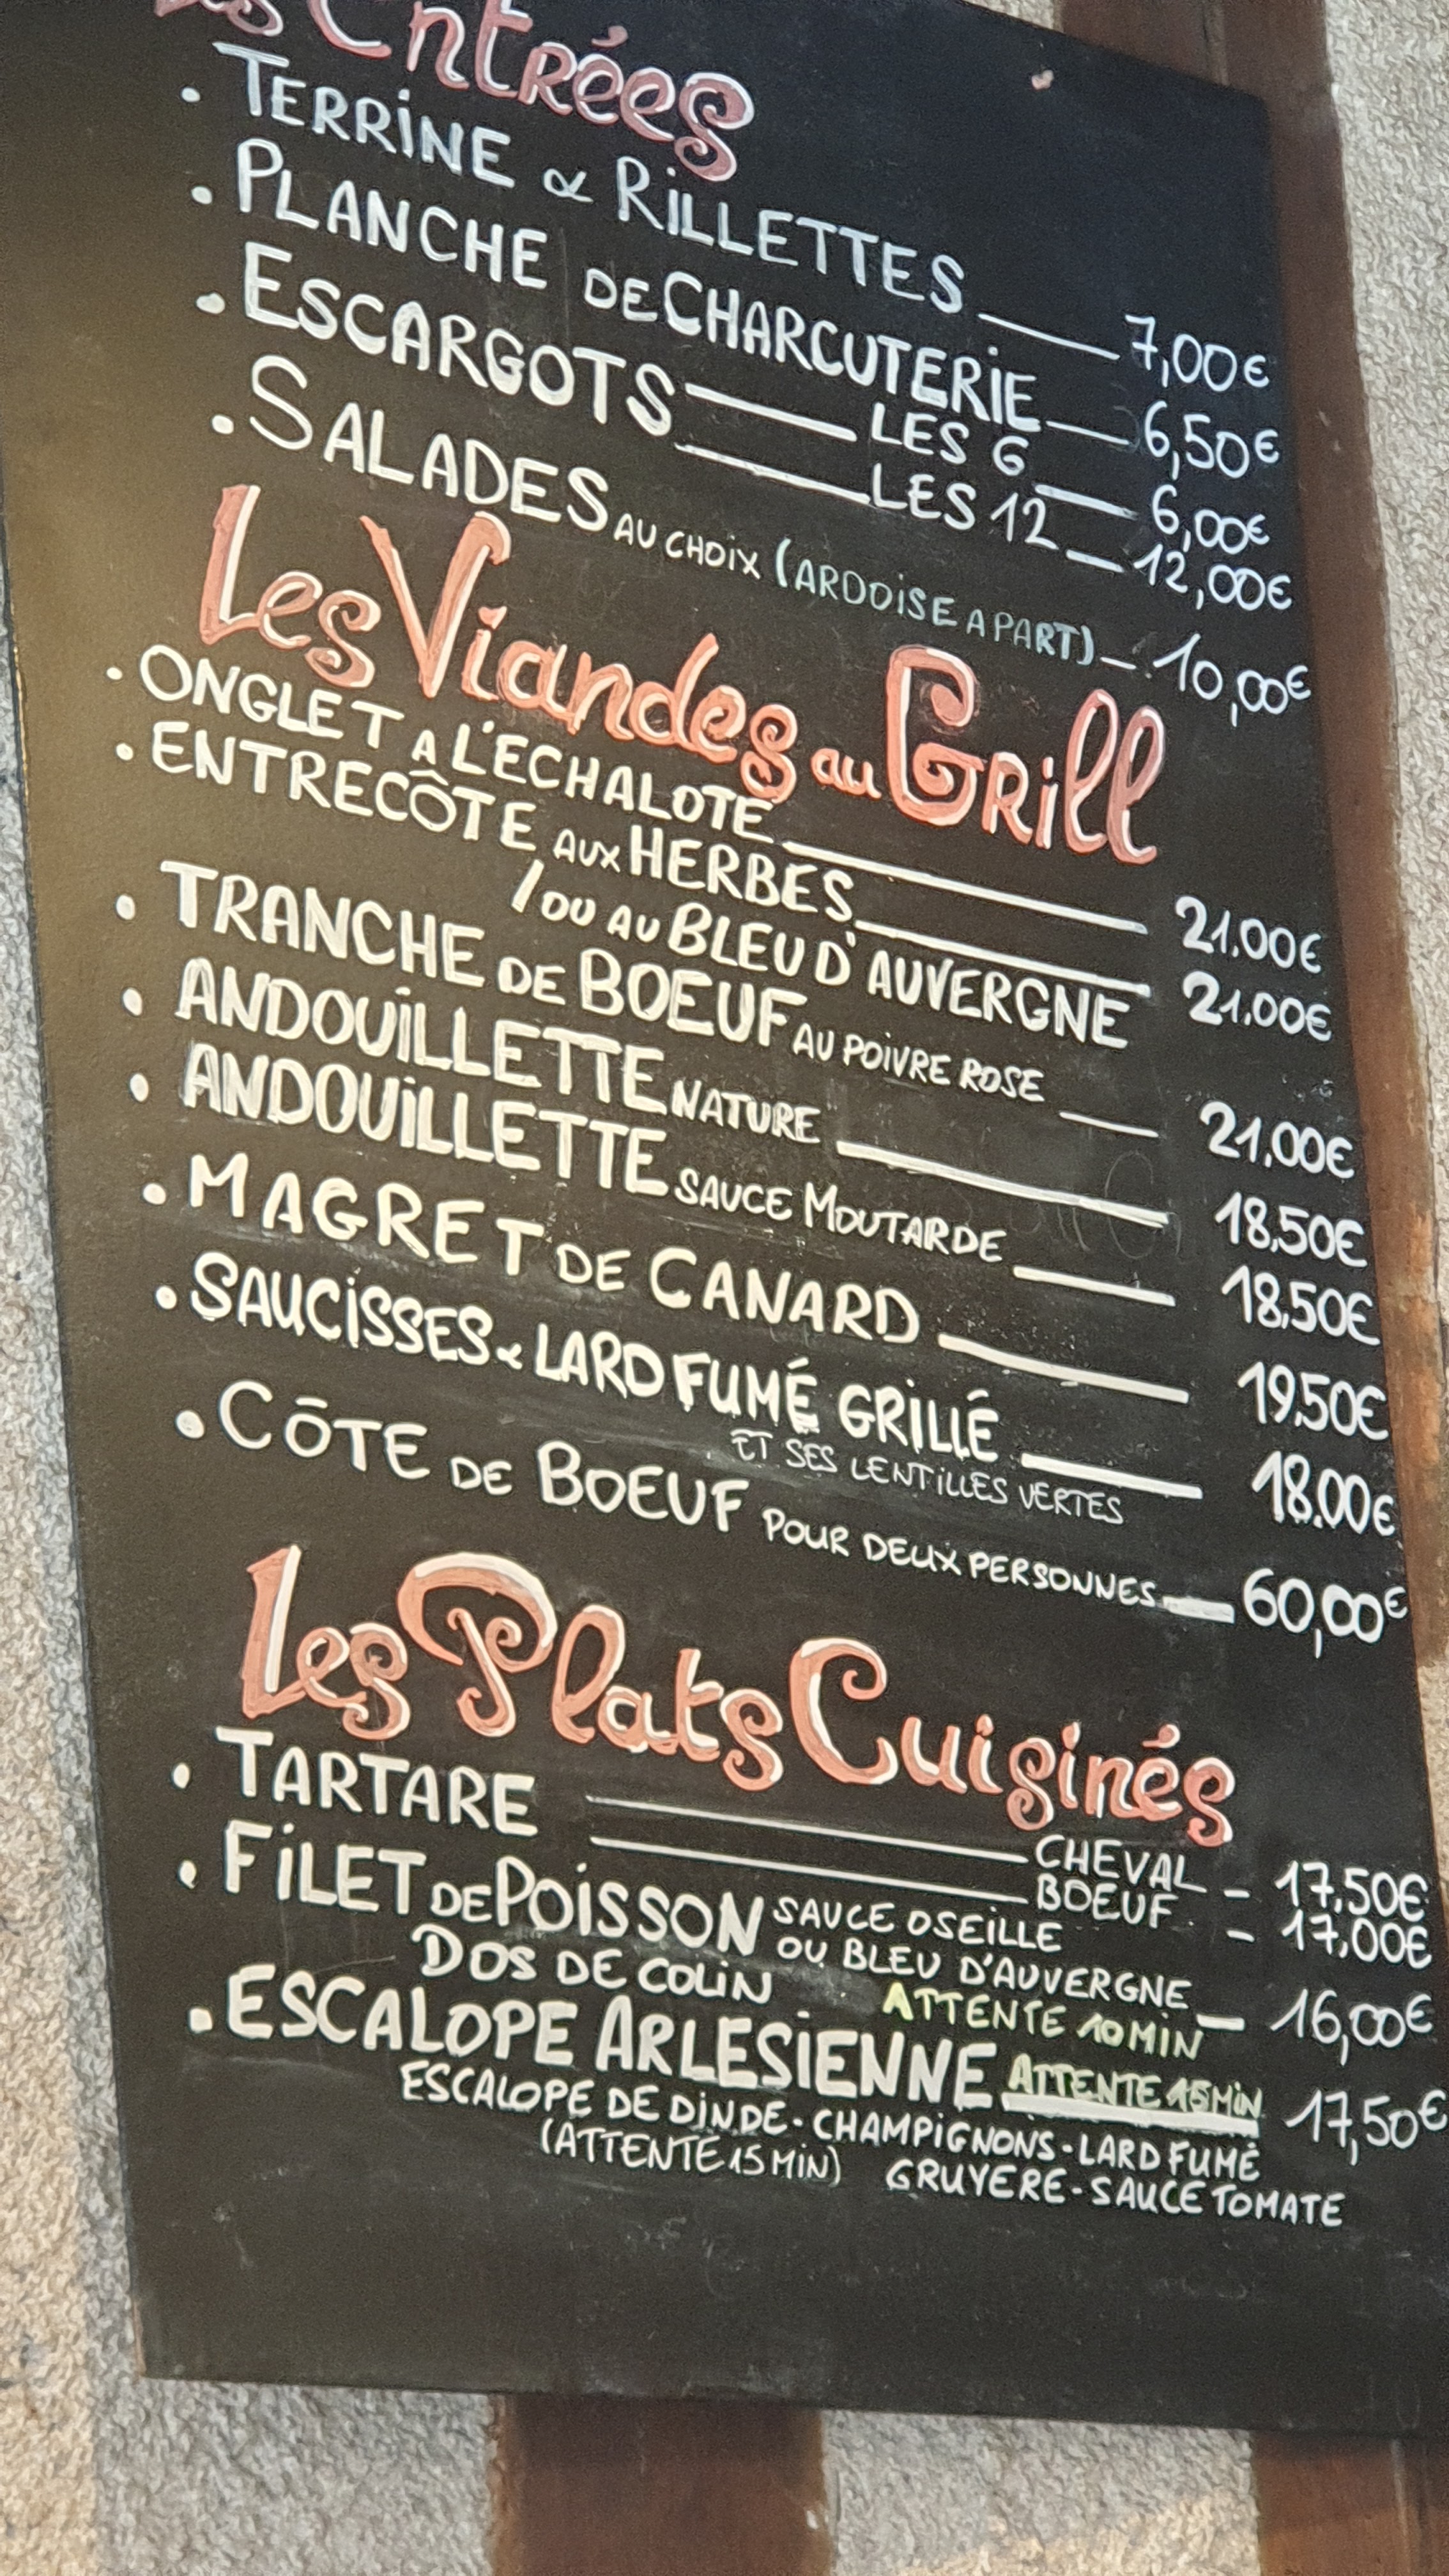 Les Entrées
. TERRINE & RILLETTES ___ 7,00€
. PLANCHE DE CHARCUTERIE ___ 6,50€
. ESCARGOTS ___ LES 6 ___ 6,00€
___ LES 12 ___ 12,00€
. SALADES AU CHOIX (ARDOISE A PART) _ 10,00€
Les Viandes au Grill
. ONGLET A L'ECHALOTE ___ 21.00€
. ENTRECÔTE AUX HERBES ___ 21.00€
/ OU AU BLEU D'AUVERGNE
. TRANCHE DE BOEUF AU POIVRE ROSE ___ 21.00€
. ANDOUILLETTE NATURE ___ 18.50€
. ANDOUILLETTE SAUCE MOUTARDE ___ 18.50€
. MAGRET DE CANARD ___ 19.50€
. SAUCISSES & LARD FUMÉ GRILLÉ ___ 18.00€
ET SES LENTILLES VERTES
. CÔTE DE BOEUF POUR DEUX PERSONNES ___ 60,00€
Les Plats Cuisinés
. TARTARE ___ CHEVAL - 17.50€
___ BOEUF - 17.00€
. FILET DE POISSON SAUCE OSEILLE
OU BLEU D'AUVERGNE _ 16,00€
DOS DE COLIN ATTENTE 10 MIN
. ESCALOPE ARLESIENNE ATTENTE 15 MIN 17,50€
ESCALOPE DE DINDE - CHAMPIGNONS - LARD FUMÉ
(ATTENTE 15 MIN) GRUYERE - SAUCE TOMATE